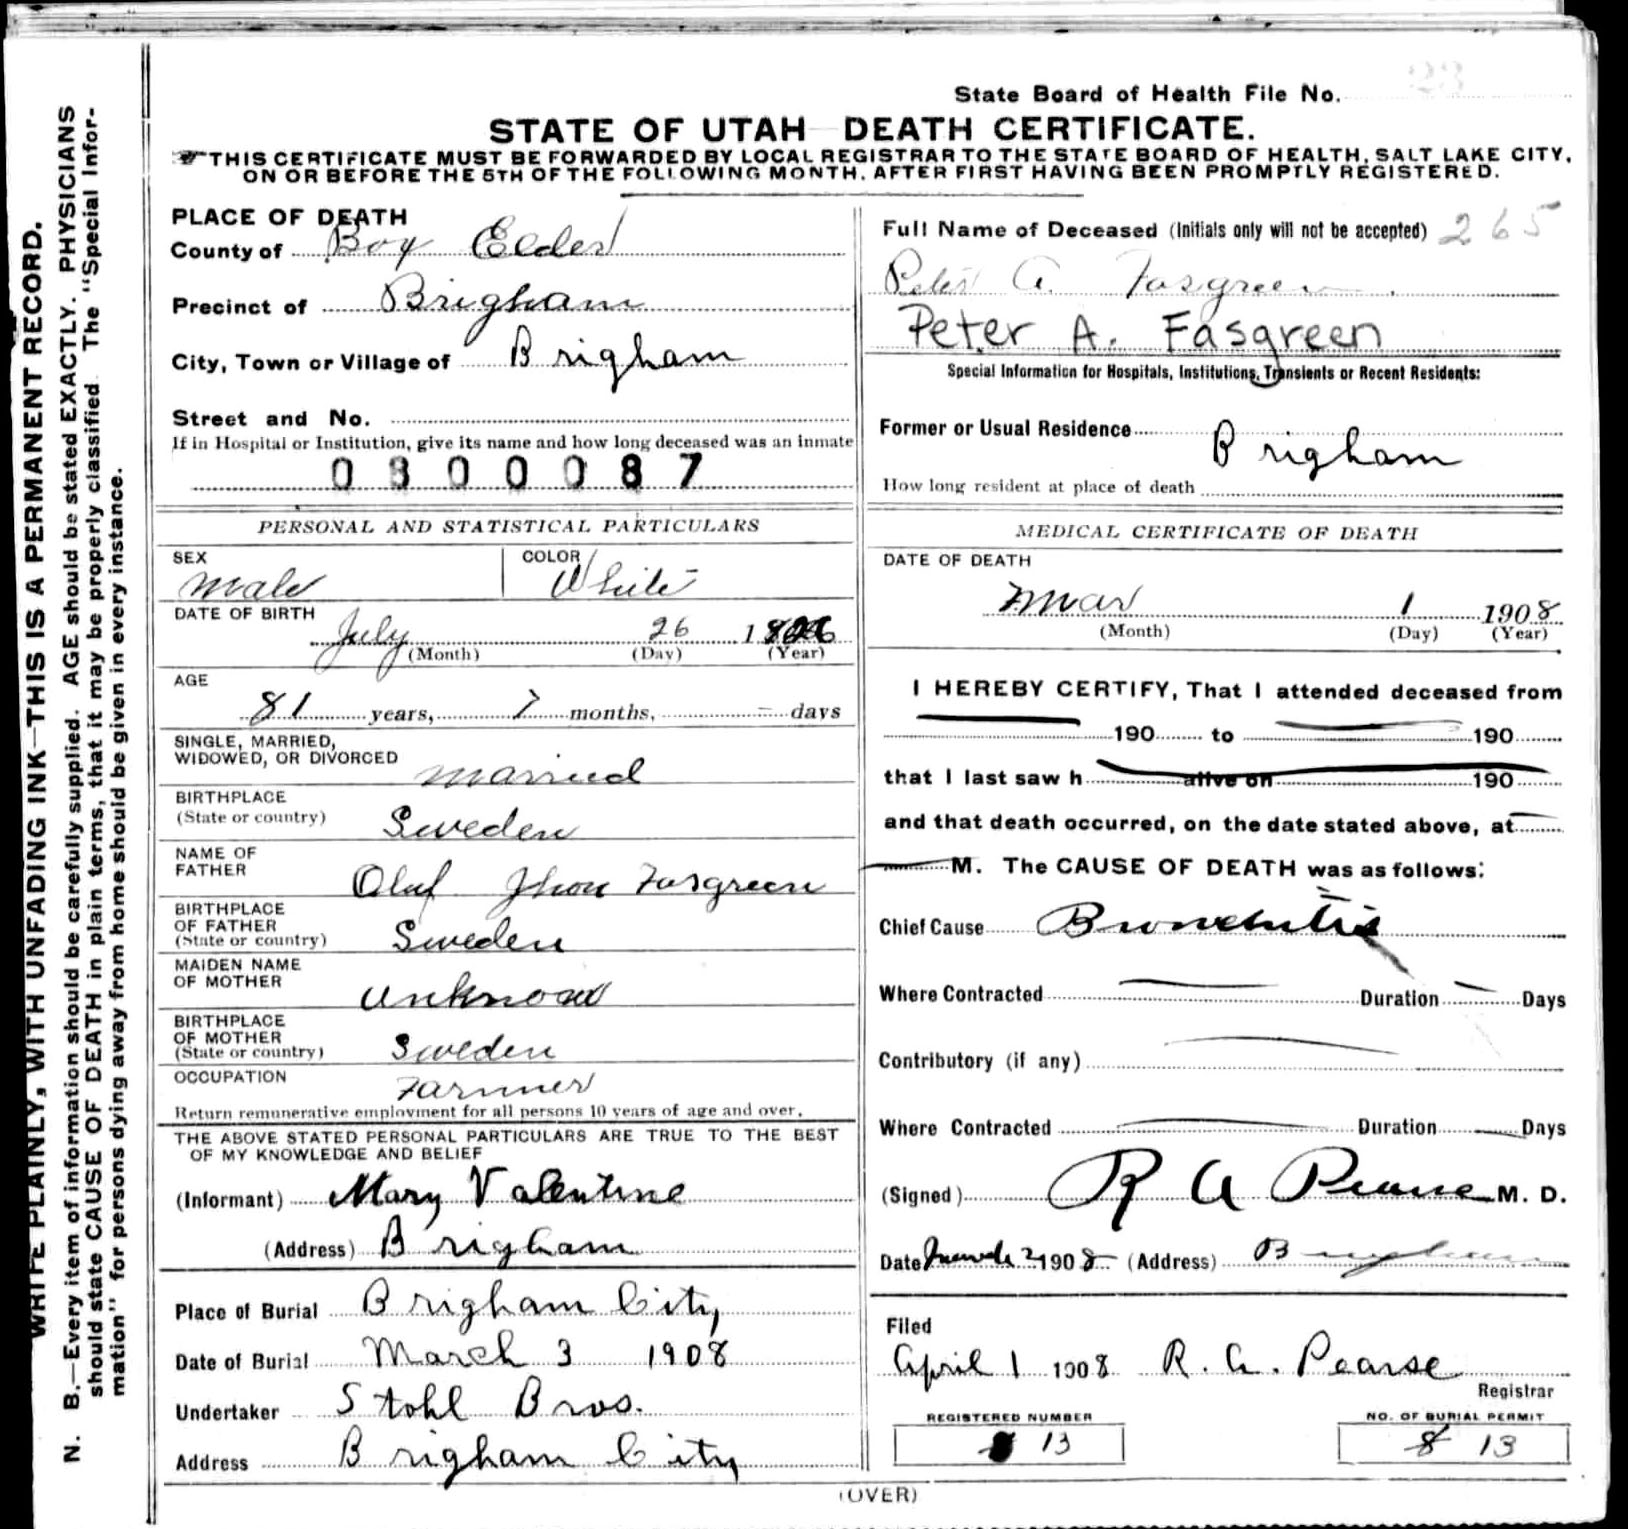 WRITE PLAINLY, WITH UNFADING INK—THIS IS A PERMANENT RECORD.
N. B.—Every item of information should be carefully supplied. AGE should be stated EXACTLY. PHYSICIANS
should state CAUSE OF DEATH in plain terms, that it may be properly classified. The "Special Infor-
mation" for persons dying away from home should be given in every instance.
State Board of Health File No. 23
STATE OF UTAH—DEATH CERTIFICATE.
THIS CERTIFICATE MUST BE FORWARDED BY LOCAL REGISTRAR TO THE STATE BOARD OF HEALTH, SALT LAKE CITY,
ON OR BEFORE THE 5TH OF THE FOLLOWING MONTH, AFTER FIRST HAVING BEEN PROMPTLY REGISTERED.
PLACE OF DEATH
County of Box Elder
Precinct of Brigham
City, Town or Village of Brigham
Street and No.
If in Hospital or Institution, give its name and how long deceased was an inmate
0300087
PERSONAL AND STATISTICAL PARTICULARS
SEX COLOR
Male White
DATE OF BIRTH
July 26 1826
(Month) (Day) (Year)
AGE
81 years, 7 months, – days
SINGLE, MARRIED,
WIDOWED, OR DIVORCED Married
BIRTHPLACE
(State or country) Sweden
NAME OF
FATHER Oluf Jhon Fasgreen
BIRTHPLACE
OF FATHER
(State or country) Sweden
MAIDEN NAME
OF MOTHER Unknown
BIRTHPLACE
OF MOTHER
(State or country) Sweden
OCCUPATION Farmer
Return remunerative employment for all persons 10 years of age and over.
THE ABOVE STATED PERSONAL PARTICULARS ARE TRUE TO THE BEST
OF MY KNOWLEDGE AND BELIEF
(Informant) Mary Valentine
(Address) Brigham
Place of Burial Brigham City
Date of Burial March 3 1908
Undertaker Stohl Bros.
Address Brigham City
Full Name of Deceased (Initials only will not be accepted) 265
Peter A. Fasgreen
Peter A. Fasgreen
Special Information for Hospitals, Institutions, Transients or Recent Residents:
Former or Usual Residence Brigham
How long resident at place of death
MEDICAL CERTIFICATE OF DEATH
DATE OF DEATH
Mar 1 1908
(Month) (Day) (Year)
I HEREBY CERTIFY, That I attended deceased from
190 to 190
that I last saw h alive on 190
and that death occurred, on the date stated above, at
M. The CAUSE OF DEATH was as follows:
Chief Cause Bronchitis
Where Contracted Duration Days
Contributory (if any)
Where Contracted Duration Days
(Signed) R A Pearse M. D.
Date March 2 1908 (Address) Brigham
Filed
April 1 1908 R. A. Pearse
Registrar
REGISTERED NUMBER NO. OF BURIAL PERMIT
13 8 13
(OVER)